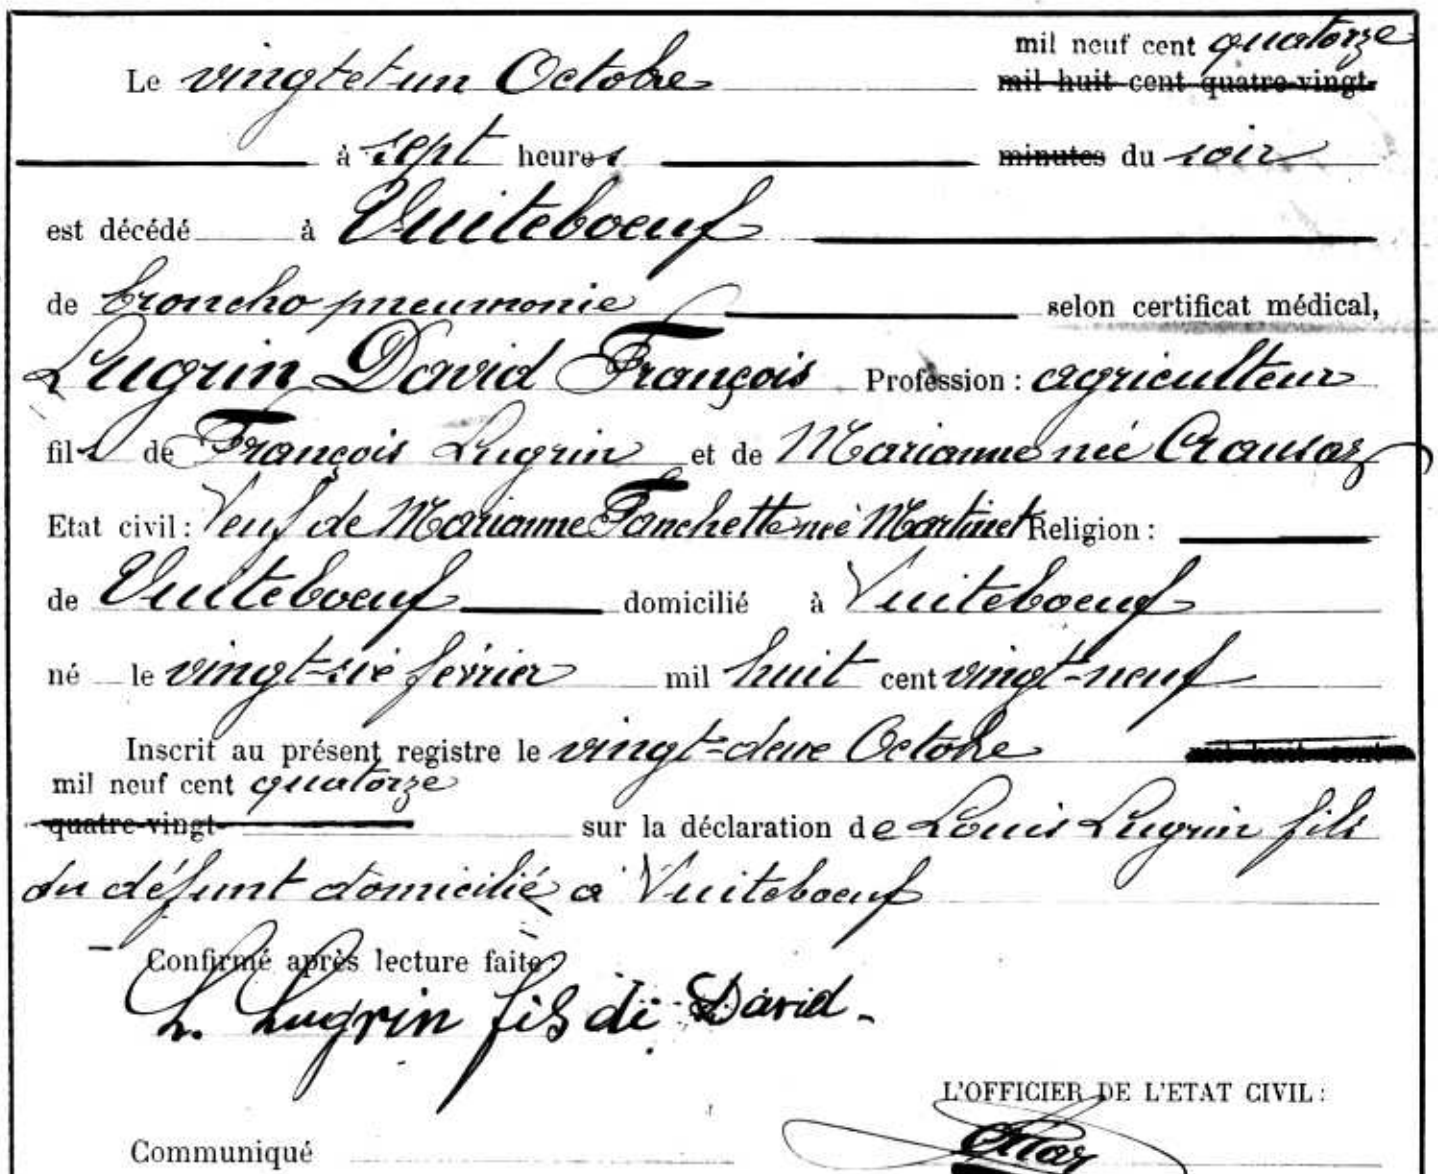 mil neuf cent quatorze
Le vingt et un Octobre mil huit cent quatre-vingt-
à sept heures minutes du soir
est décédé à Vuiteboeuf
de broncho pneumonie selon certificat médical,
Lugrin David François Profession : agriculteur
fils de François Lugrin et de Marianne née Crausaz
Etat civil : Veuf de Marianne Fanchette née Martinet Religion :
de Vuiteboeuf domicilié à Vuiteboeuf
né le vingt-six février mil huit cent vingt-neuf
Inscrit au présent registre le vingt-deux Octobre mil huit cent
mil neuf cent quatorze
quatre-vingt- sur la déclaration de Louis Lugrin fils
du défunt domicilié à Vuiteboeuf
Confirmé après lecture faite :
L. Lugrin fils de David.
L'OFFICIER DE L'ETAT CIVIL :
Communiqué